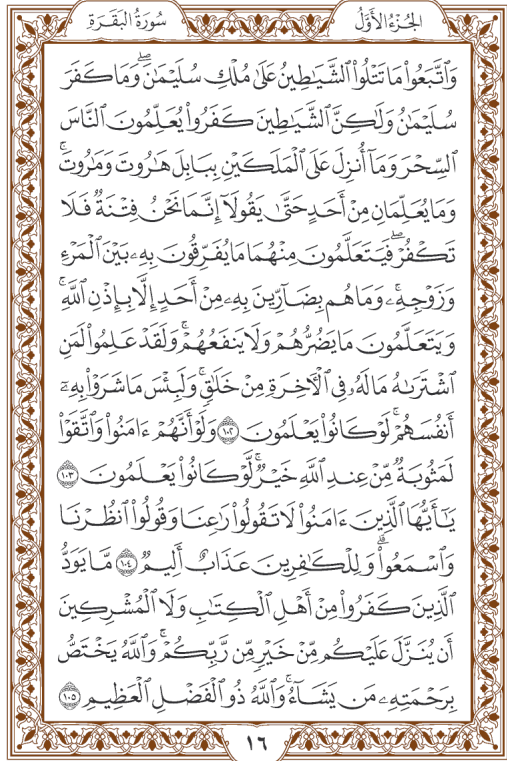 الجُزْءُ الأَوَّلُ
سُورَةُ البَقَرَةِ
وَٱتَّبَعُوا۟ مَا تَتْلُوا۟ ٱلشَّيَـٰطِينُ عَلَىٰ مُلْكِ سُلَيْمَـٰنَۖ وَمَا كَفَرَ
سُلَيْمَـٰنُ وَلَـٰكِنَّ ٱلشَّيَـٰطِينَ كَفَرُوا۟ يُعَلِّمُونَ ٱلنَّاسَ
ٱلسِّحْرَ وَمَآ أُنزِلَ عَلَى ٱلْمَلَكَيْنِ بِبَابِلَ هَـٰرُوتَ وَمَـٰرُوتَۚ
وَمَا يُعَلِّمَانِ مِنْ أَحَدٍ حَتَّىٰ يَقُولَآ إِنَّمَا نَحْنُ فِتْنَةٌ فَلَا
تَكْفُرْۖ فَيَتَعَلَّمُونَ مِنْهُمَا مَا يُفَرِّقُونَ بِهِۦ بَيْنَ ٱلْمَرْءِ
وَزَوْجِهِۦۚ وَمَا هُم بِضَآرِّينَ بِهِۦ مِنْ أَحَدٍ إِلَّا بِإِذْنِ ٱللَّهِۚ
وَيَتَعَلَّمُونَ مَا يَضُرُّهُمْ وَلَا يَنفَعُهُمْۚ وَلَقَدْ عَلِمُوا۟ لَمَنِ
ٱشْتَرَىٰهُ مَا لَهُۥ فِى ٱلْـَٔاخِرَةِ مِنْ خَلَـٰقٍۚ وَلَبِئْسَ مَا شَرَوْا۟ بِهِۦٓ
أَنفُسَهُمْۚ لَوْ كَانُوا۟ يَعْلَمُونَ ١٠٢ وَلَوْ أَنَّهُمْ ءَامَنُوا۟ وَٱتَّقَوْا۟
لَمَثُوبَةٌ مِّنْ عِندِ ٱللَّهِ خَيْرٌۚ لَّوْ كَانُوا۟ يَعْلَمُونَ ١٠٣
يَـٰٓأَيُّهَا ٱلَّذِينَ ءَامَنُوا۟ لَا تَقُولُوا۟ رَٰعِنَا وَقُولُوا۟ ٱنظُرْنَا
وَٱسْمَعُوا۟ۗ وَلِلْكَـٰفِرِينَ عَذَابٌ أَلِيمٌ ١٠٤ مَّا يَوَدُّ
ٱلَّذِينَ كَفَرُوا۟ مِنْ أَهْلِ ٱلْكِتَـٰبِ وَلَا ٱلْمُشْرِكِينَ
أَن يُنَزَّلَ عَلَيْكُم مِّنْ خَيْرٍ مِّن رَّبِّكُمْۗ وَٱللَّهُ يَخْتَصُّ
بِرَحْمَتِهِۦ مَن يَشَآءُۚ وَٱللَّهُ ذُو ٱلْفَضْلِ ٱلْعَظِيمِ ١٠٥
١٦